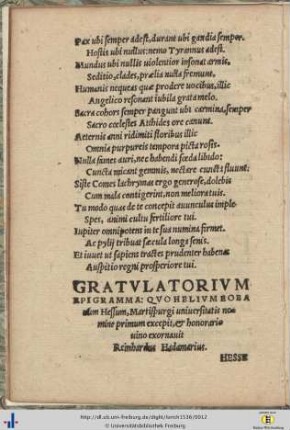 Pax ubi semper adest, durant ubi gaudia semper.
Hostis ubi nullus: nemo Tyrannus adest.
Mundus ubi nullis uiolentior insonat armis,
Seditio, clades, prælia nulla fremunt.
Humanis nequeas quæ prodere uocibus, illic
Angelico resonant iubila grata melo.
Sacra cohors semper pangunt ubi carmina, semper
Sacro cœlestes Atthides ore canunt.
Aeternis anni ridimiti floribus illic
Omnia purpureis tempora picta rosis.
Nulla fames auri, nec habendi fœda libido:
Cuncta micant gemmis, nectare cuncta fluunt:
Siste Comes lachrymas ergo generose, dolebis
Cum mala contigerint, non meliora tuis.
Tu modo quas de te concepit auunculus imple
Spes, animi cultu fertiliore tui.
Iupiter omnipotens in te sua numina firmet.
Ac pylij tribuat sæcula longa senis.
Et iuuet ut sapiens tractes prudenter habenas
Auspitio regni prosperiore tui.
GRATVLATORIVM
EPIGRAMMA: QVO HELIVM EOBA
num Hessum, Martispurgi uniuersitatis no-
mine primum excepit, & honorario
uino exornauit
Reinhardus Hadamarius.
HESSE
http://dl.ub.uni-freiburg.de/diglit/lorich1536/0012
© Universitätsbibliothek Freiburg